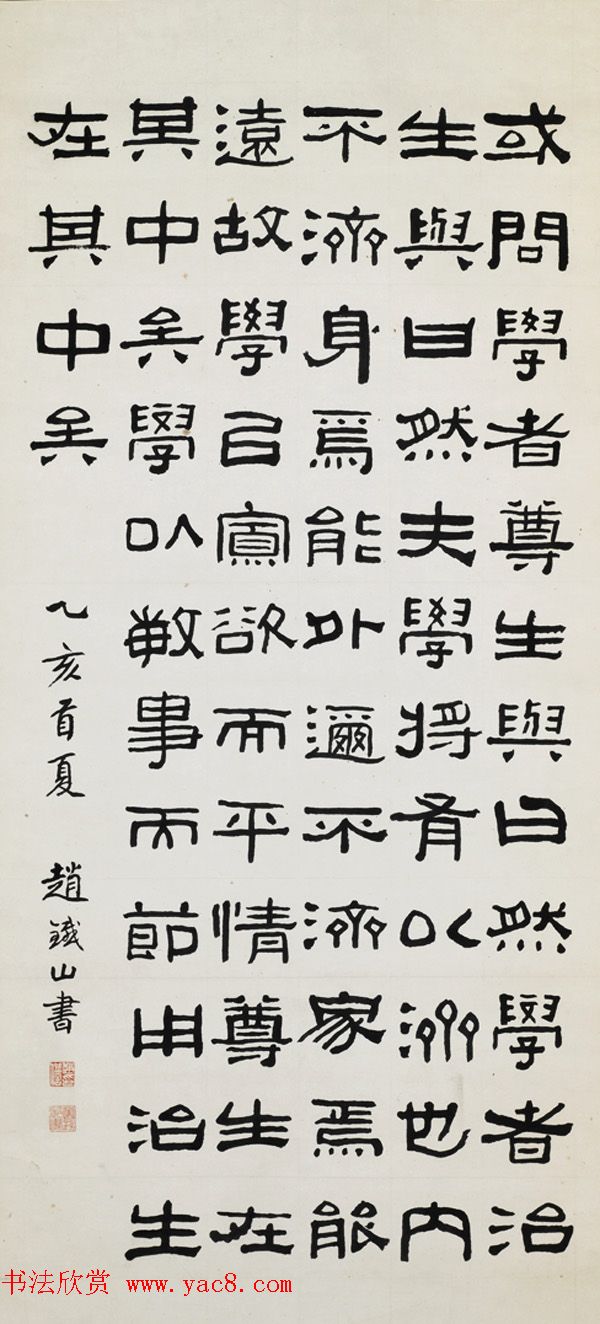 或問學者尊生與曰然學者治
生與曰然夫學將有以濟也內
不濟身焉能外邇不濟家焉能
遠故學㠯寡欲而平情尊生在
其中矣學以敏事而節用治生
在其中矣
乙亥首夏 趙鐵山書
书法欣赏 www.yac8.com